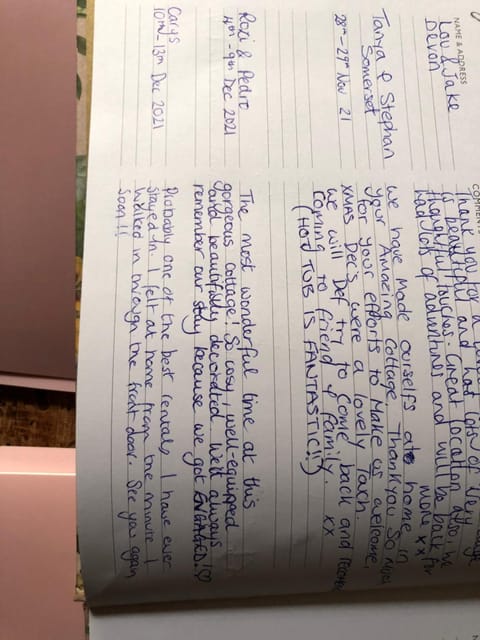 NAME & ADDRESS
COMMENTS
Lou & Jake
Devon
Thank you for a
is beautiful and had lots of
thoughtful touches. Great location also, we
had lots of adventures and will be back for
more xx
Tanya & Stephan
Somerset
28th - 29th Nov 21
we have made ourselfs at home in
your Amazing Cottage, Thankyou So Much
for your efforts to Make us welcome,
XMAS Dec's were a lovely Touch.
we will Def try to come back and
coming to friend & family. xx
(HOT TUB IS FANTASTIC!!)
Roxi & Pedro
4th - 9th Dec 2021
The most wonderful time at this
gorgeous cottage! So cosy, well-equipped
and beautifully decorated. We'll always
remember our stay because we got ENGAGED!♡
Carys
10th - 13th Dec 2021
Probably one of the best rentals, I have ever
stayed in. I felt at home from the minute I
walked in through the front door. See you again
soon!!